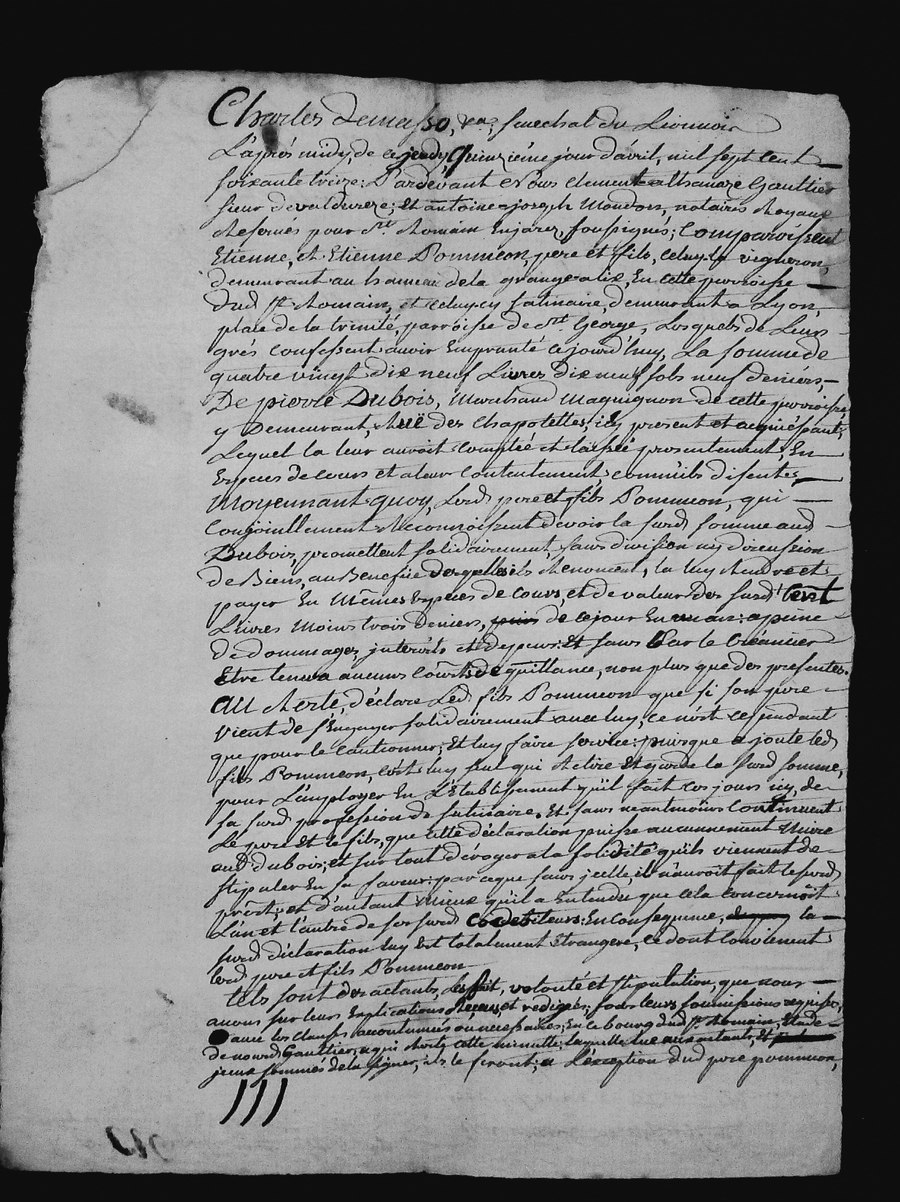 Charles Demasso, &c.ª, senechal du Lionnois
L'après midy de ce jeudy, Quinziéme jour d'avril, mil sept cent
soixante treize: Pardevant Nous Clement athanaze Gaultier
sieur de valdureze; Et antoine joseph Mondon, notaires Royaux
Reservés pour St. Romain en jarez, soussignés; Comparoissent
Etienne, et Etienne Pommeon, pere et fils, celuy-la vigneron,
demeurant au hameau de la grange alix, En cette parroisse
dud St. Romain, et celuy-cy satinaire, demeurant a Lyon,
place de la trinité, parroisse de St. George, Lesquels de Leurs
grés Confessent avoir Emprunté cejourd'huy, La somme de
quatre vingt dix neuf Livres dix neuf sols neuf deniers,
De pierre Dubois, Marchand Maquignon de cette parroisse
y Demeurant, Ruë des Chapolettes, icy present et acqueissant,
Lequel la leur auroit Comptée et Laissée presentement, En
Especes de Cours et a leur Contentement, comm'ils disent.
Moyennant quoy, Lesd. pere et fils Pommeon, qui
Conjoinllement Reconnoissent devoir la susd. somme aud.
Dubois, promettent solidairement, sans division ny discussion
de Biens, au Benefice desquelles ils Renoncent, la luy Rendre et
payer En Mêmes Especes de Cours, et de valeur des susd. Cent
Livres Moins trois deniers, de cejour En un an: a peine
de dommages, interêts et depens: Et sans que le Créancier
Etre tenu a aucuns Coûts de quittance, non plus que des presentes.
Au Reste, déclare Led. fils Pommeon que si son pere
vient de s'Engager solidairement avec luy, ce n'est cependant
que pour le Cautionner, Et luy faire service: puisque ajoute led.
fils Pommeon, c'est luy seul qui Retire Et garde la susd. somme,
pour L'employer En L'Etablissement qu'il fait ces jours icy, de
sa susd. profession de satinaire. Et sans neantmoins Contiennent
Le pere et le fils, que cette déclaration puisse aucunement Nuire
aud. dubois; et sur tout déroger a la solidité qu'ils viennent de
stipuler En sa faveur: parceque sans jcelle, il n'auroit fait le susd.
prêt; et d'autant mieux qu'il a Entendu que cela concernoit
L'un et l'autre de ses susd. Codebiteurs: En Consequence, la
susd. déclaration luy Est totalement Etrangere, ce dont Conviennent
lesd. pere et fils Pommeon
Tels sont des actants, Les fait, volonté et stipulation, que nous
avons sur leurs Explications Receu, et redigés; sous leurs soumissions requises,
avec les clauses accoutumées ou necessaires; En ce bourg dud. St. Romain, Etude
de nousd. Gaultier, a qui Reste cette minutte; laquelle Lue aux actants, Et
jceux sommés de la signer, ils le feront; a L'exception dud. pere pommeon,